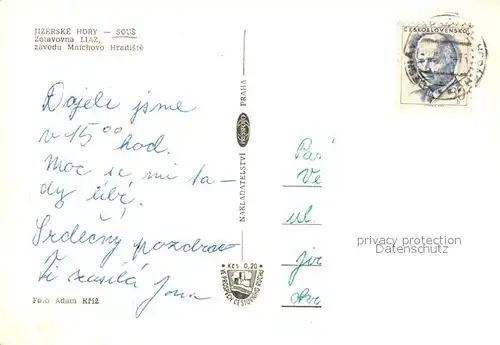 JIZERSKÉ HORY — SOUŠ
Zotavovna LIAZ,
závodu Mnichovo Hradiště
Dojeli jsme
v 15⁰⁰ hod.
Moc se mi ta-
dy líbí.
Srdečný pozdrav
Ti zasílá Jana
Foto Adam Kříž
NAKLADATELSTVÍ
PRAHA
Kčs 0,20
VE PROSPĚCH CESTOVNÍHO RUCHU
ČESKOSLOVENSKO
Ve
ul.
privacy protection
Datenschutz